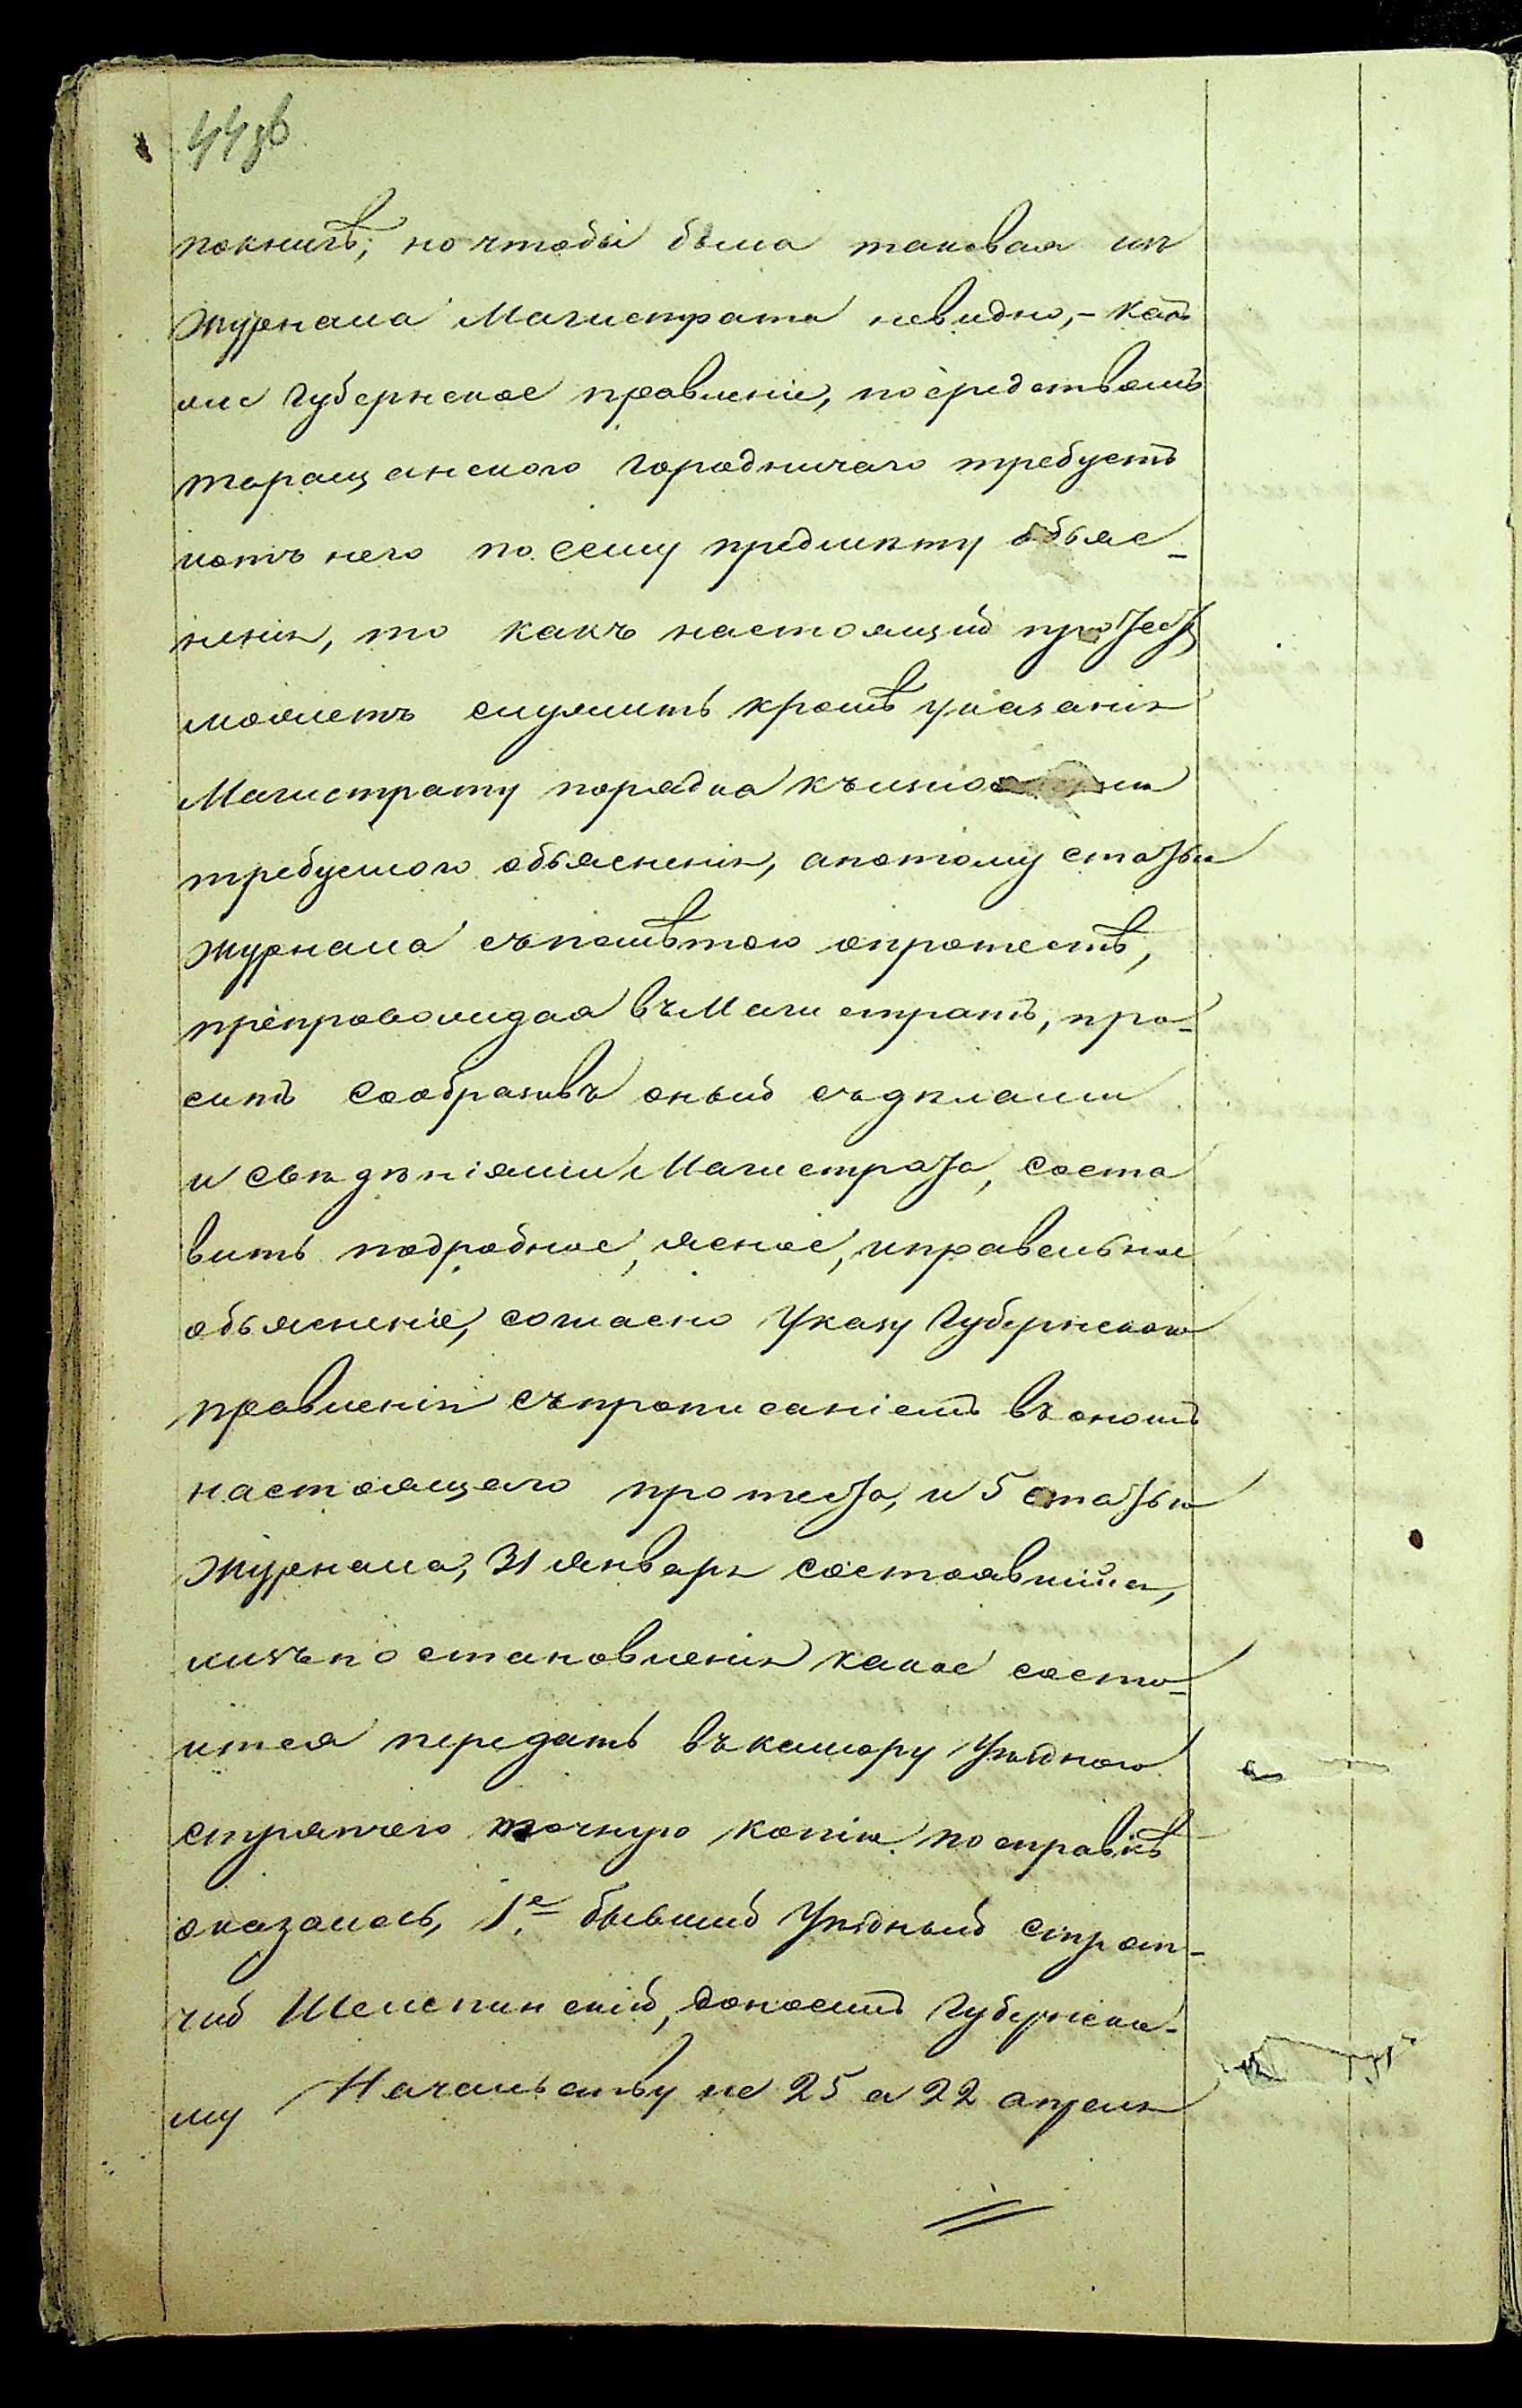 44 зв
покнигѣ; но чтобы была таковая изъ
журнала Магистрата невидно, - какъ
же Губернское правленіе, посредствомъ
таращанского Городничаго требуетъ
иотъ него по сему предмѣту объяс-
ненія, то какъ настоящій протестъ
можетъ служить кромѣ указанія
Магистрату порядка къ
требуемого объясненія, апотому статью
журнала съпомѣтою опротестѣ,
препровождая въ Магистратъ, про-
ситъ сообразивъ оный съдѣлами
и свѣдѣніями Магистрата, соста
вить подробное, ясное, иправельное
объясненіе, согласно Указу Губернского
правленія съпрописаніемъ въ ономъ
настоящего протеста, и 5 статьи
журнала, 31 Января состоявшійся,
иизъ постановленія какое состо-
ится передать въ камору Уѣздного
стряпчего точную копію. по справкѣ
оказалось, 1е бывшій Уѣздный стряп-
чій Шелепинскій, доноситъ Губернско-
му Начальству не 25 а 22 апреля